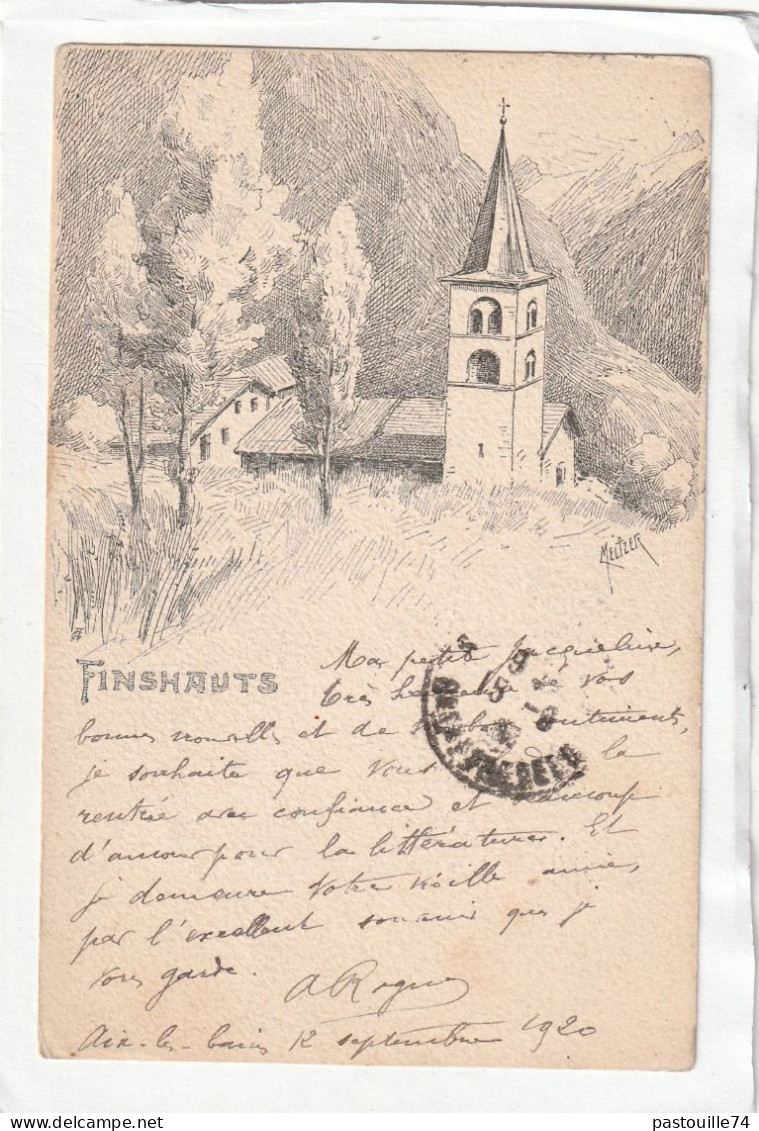 MELTZER
FINSHAUTS
Ma petite Jacqueline,
très heureuse de vos
bonnes nouvelles et de
je souhaite que vous la
rentrée avec confiance et beaucoup
d'amour pour la littérature. Et
je demeure votre vieille amie,
par l'excellent souvenir que je
vous garde.
A Rogue
Aix-les-bains 12 septembre 1920
pastouille74